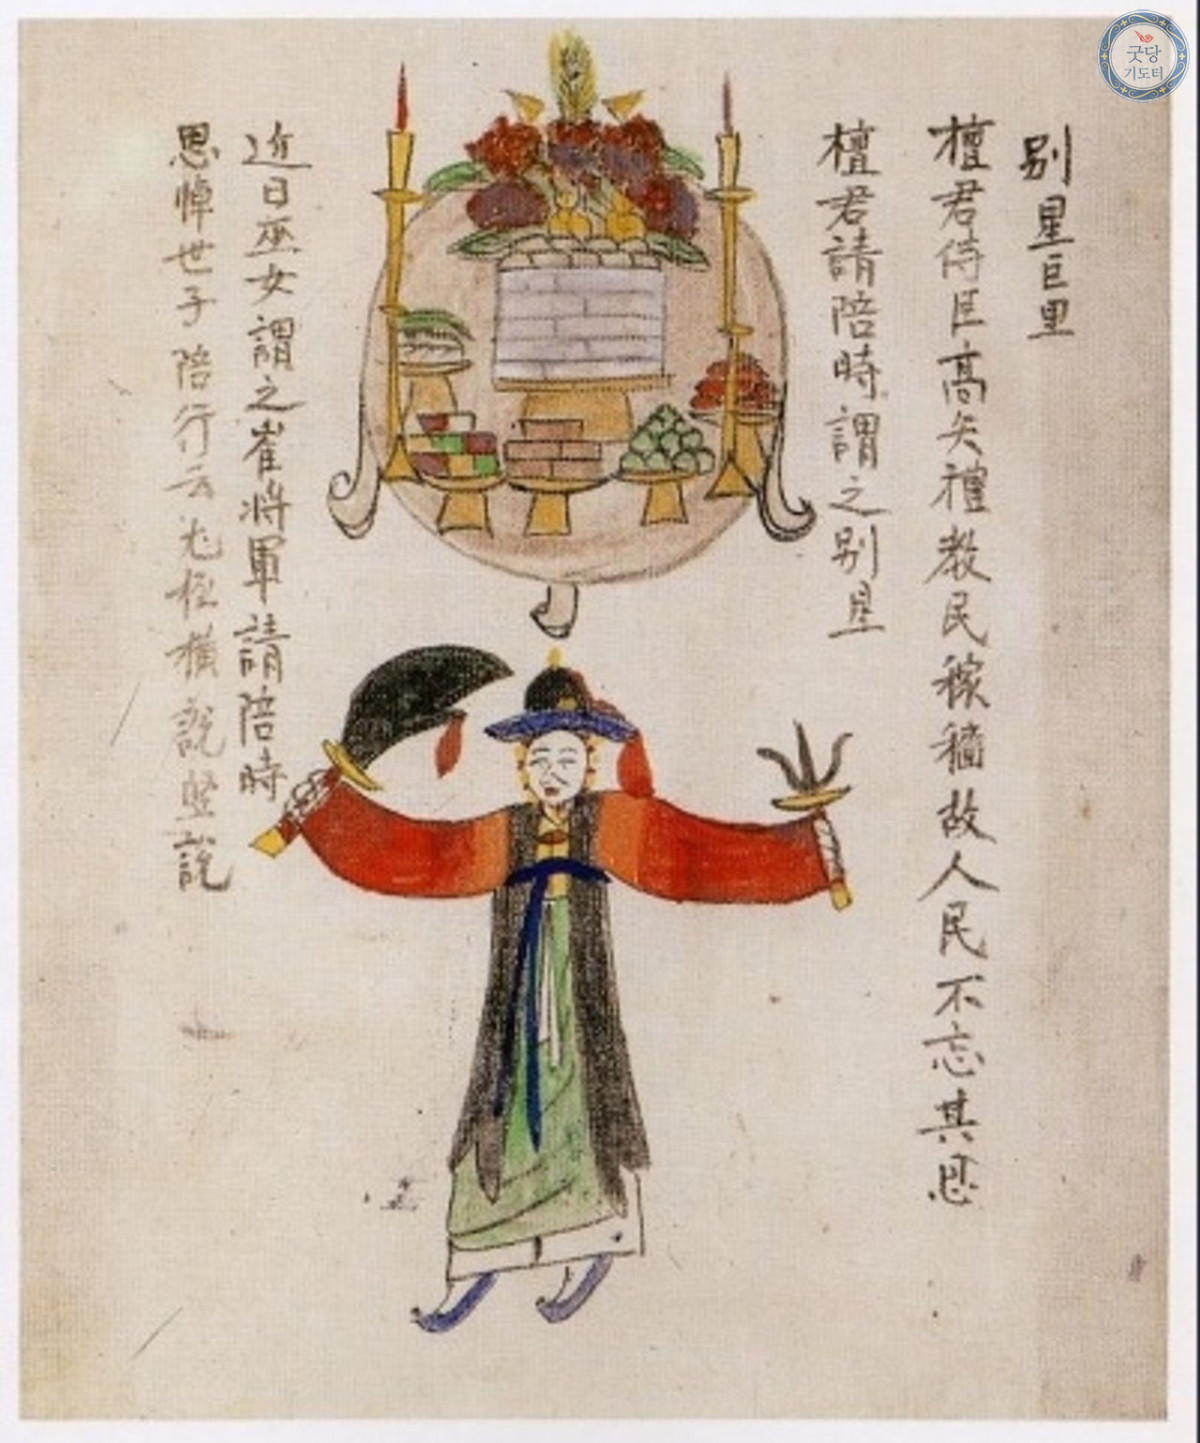 別星巨里
檀君侍臣高矢禮教民稼穡故人民不忘其恩
檀君請陪時謂之別星
近日巫女謂之崔將軍請陪時
思悼世子陪行云尤極橫說竪說
굿당
기도터